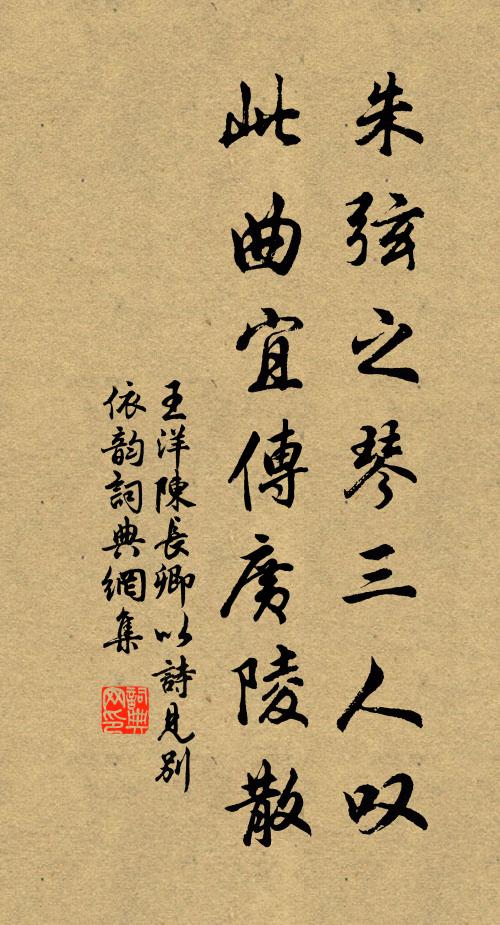 朱弦之琴三人叹
此曲宜傳廣陵散
王洋陳長卿以詩見别
依韵詞典網集
詞典
网印